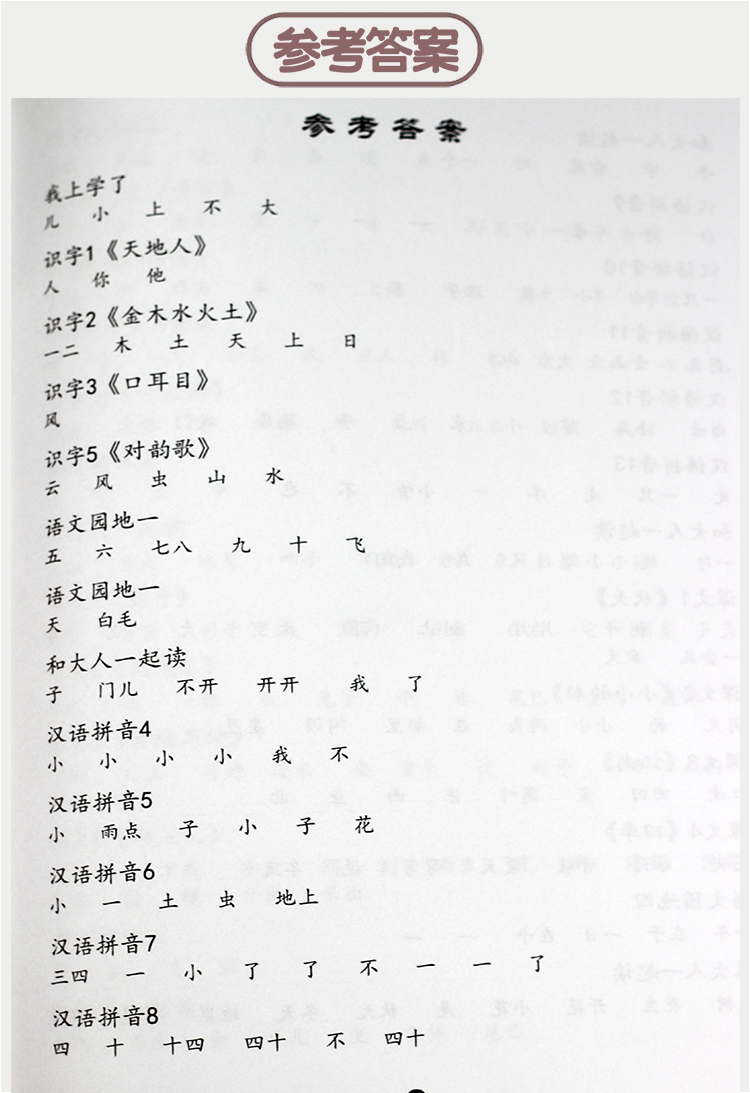 参考答案
参考答案
我上学了
儿 小 上 不 大
识字1《天地人》
人 你 他
识字2《金木水火土》
一二 木 土 天 上 日
识字3《口耳目》
风
识字5《对韵歌》
云 风 虫 山 水
语文园地一
五 六 七八 九 十 飞
语文园地一
天 白毛
和大人一起读
子 门儿 不开 开开 我 了
汉语拼音4
小 小 小 小 我 不
汉语拼音5
小 雨点 子 小 子 花
汉语拼音6
小 一 土 虫 地上
汉语拼音7
三四 一 小 了 了 不 一 一 了
汉语拼音8
四 十 十四 四十 不 四十